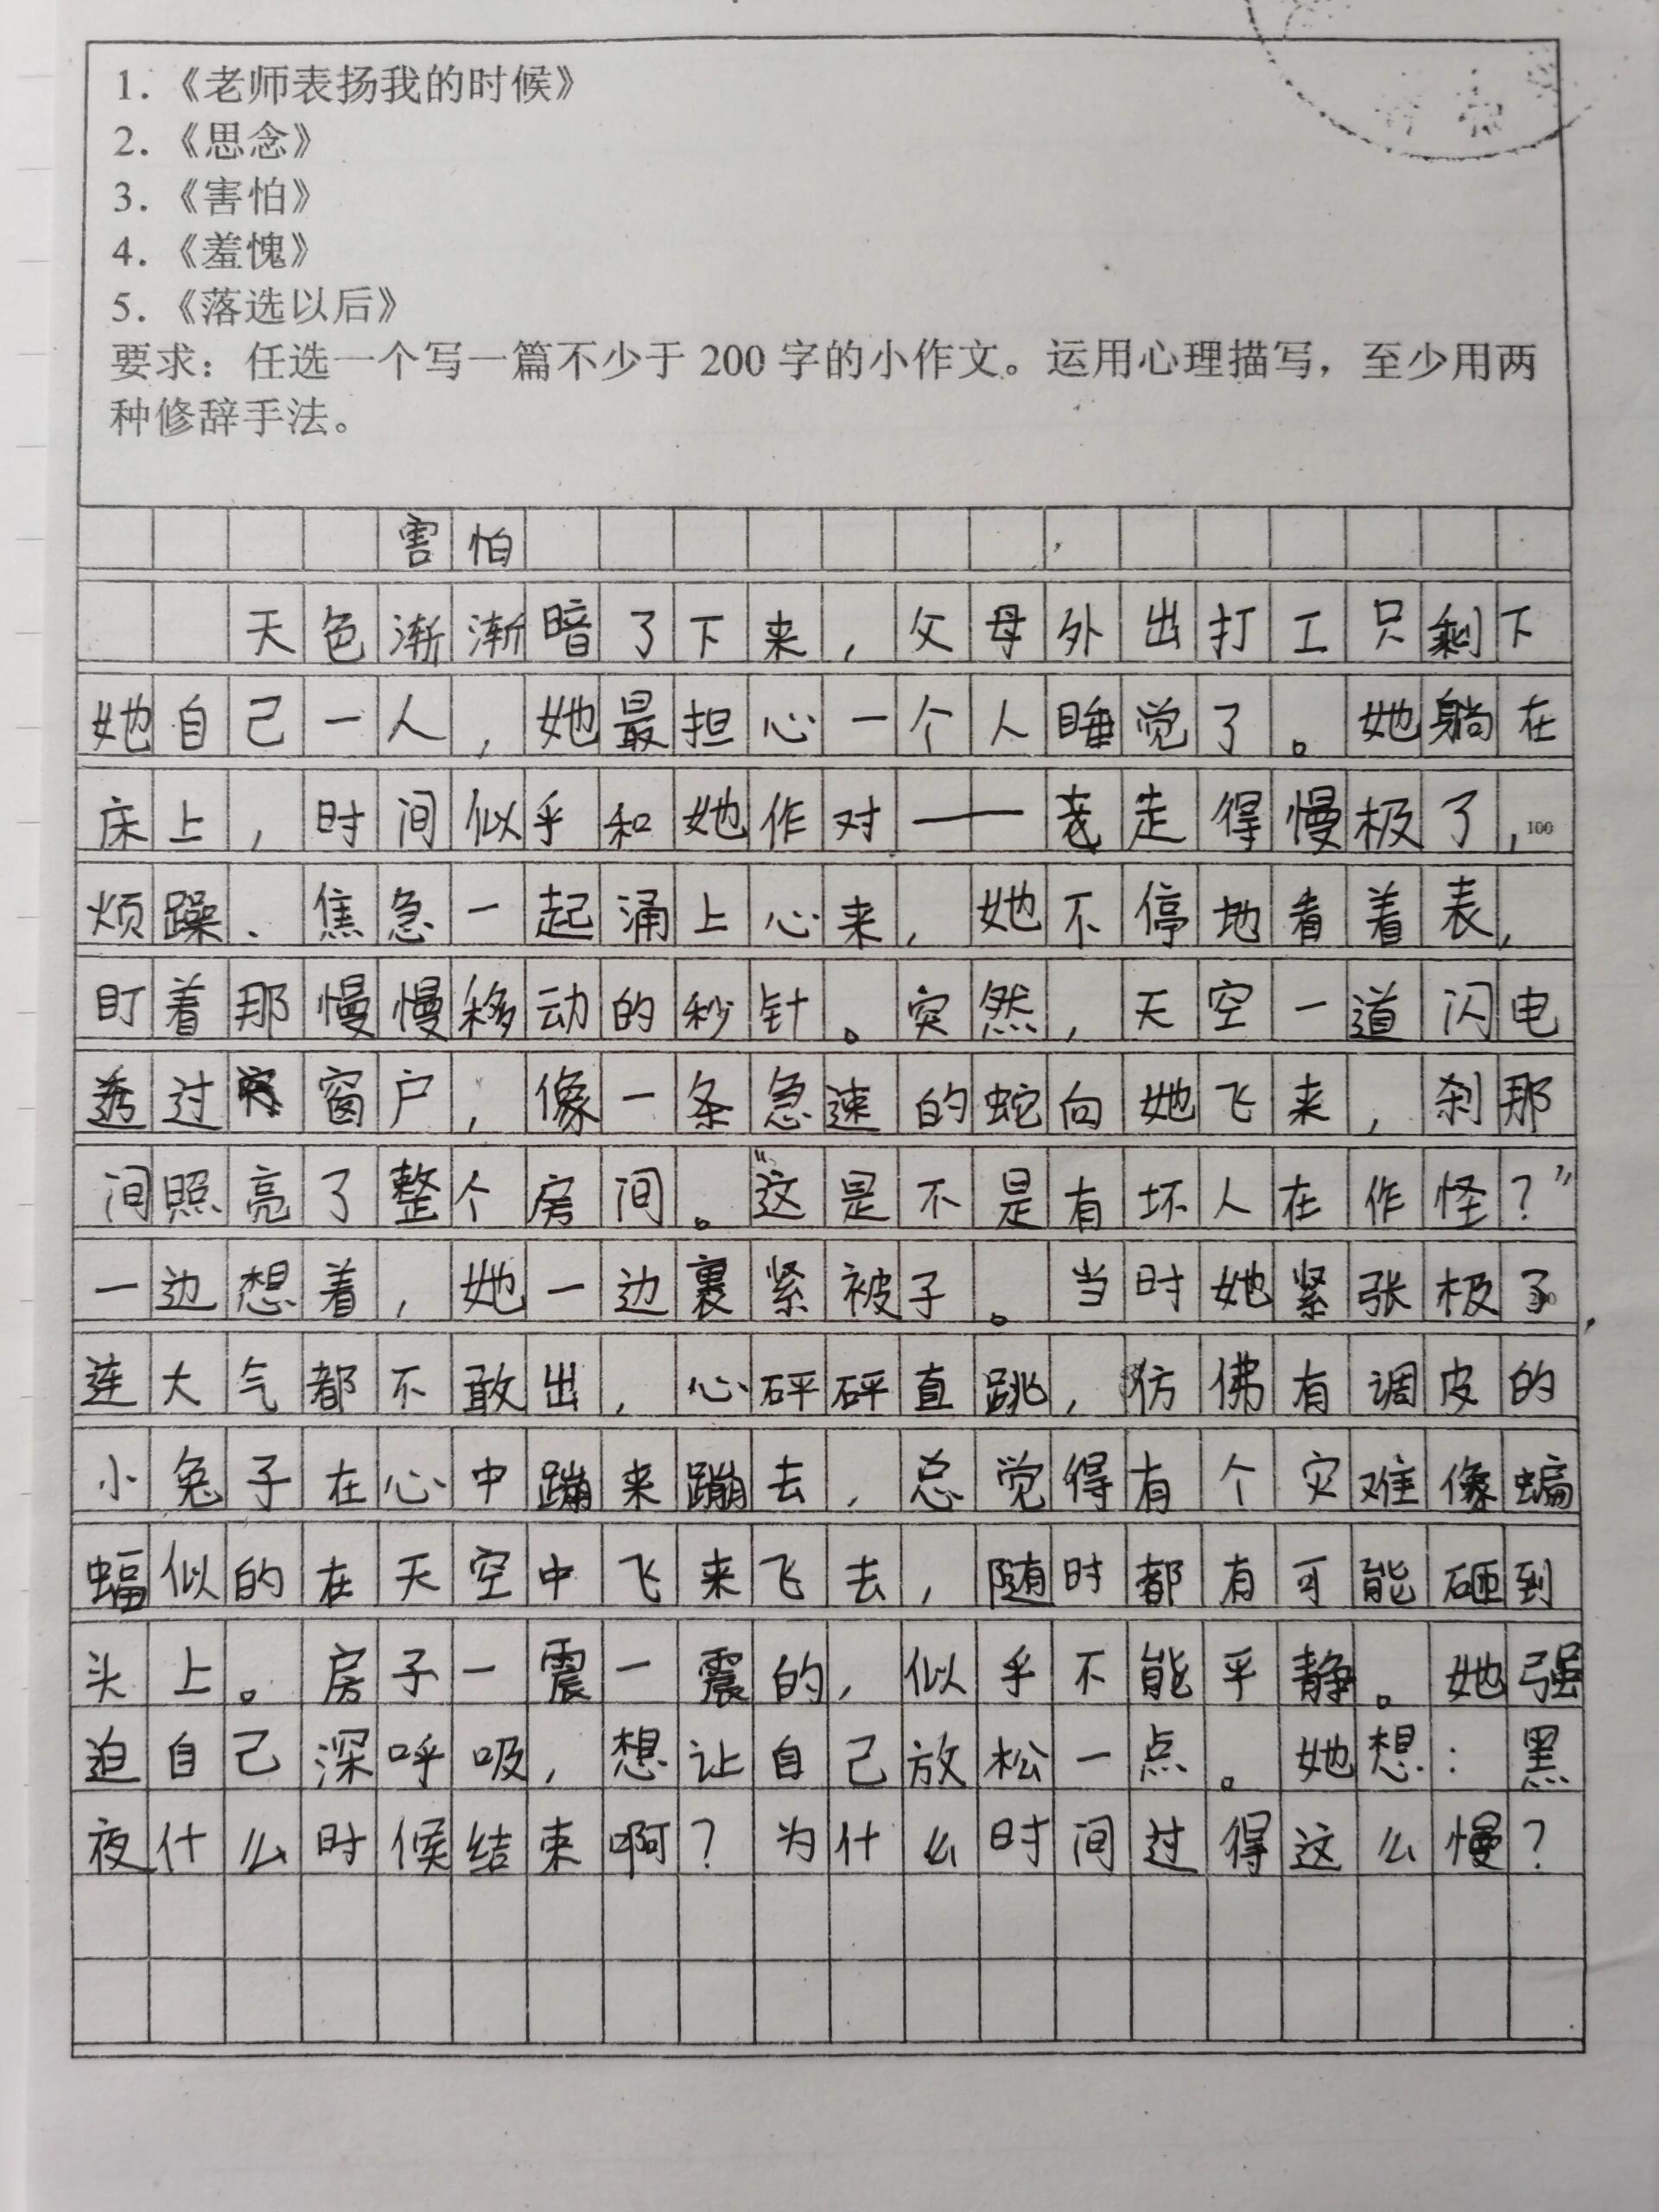 1.《老师表扬我的时候》
2.《思念》
3.《害怕》
4.《羞愧》
5.《落选以后》
要求：任选一个写一篇不少于 200 字的小作文。运用心理描写，至少用两
种修辞手法。
害怕
天色渐渐暗了下来，父母外出打工只剩下
她自己一人，她最担心一个人睡觉了。她躺在
床上，时间似乎和她作对——老走得慢极了，
100
烦躁、焦急一起涌上心来，她不停地看着表，
盯着那慢慢移动的秒针。突然，天空一道闪电
透过窗户，像一条急速的蛇向她飞来，刹那
间照亮了整个房间。“这是不是有坏人在作怪？”
一边想着，她一边裹紧被子。当时她紧张极了，
连大气都不敢出，心砰砰直跳，仿佛有调皮的
小兔子在心中蹦来蹦去，总觉得有个灾难像蝙
蝠似的在天空中飞来飞去，随时都有可能砸到
头上。房子一震一震的，似乎不能平静。她强
迫自己深呼吸，想让自己放松一点。她想：黑
夜什么时候结束啊？为什么时间过得这么慢？